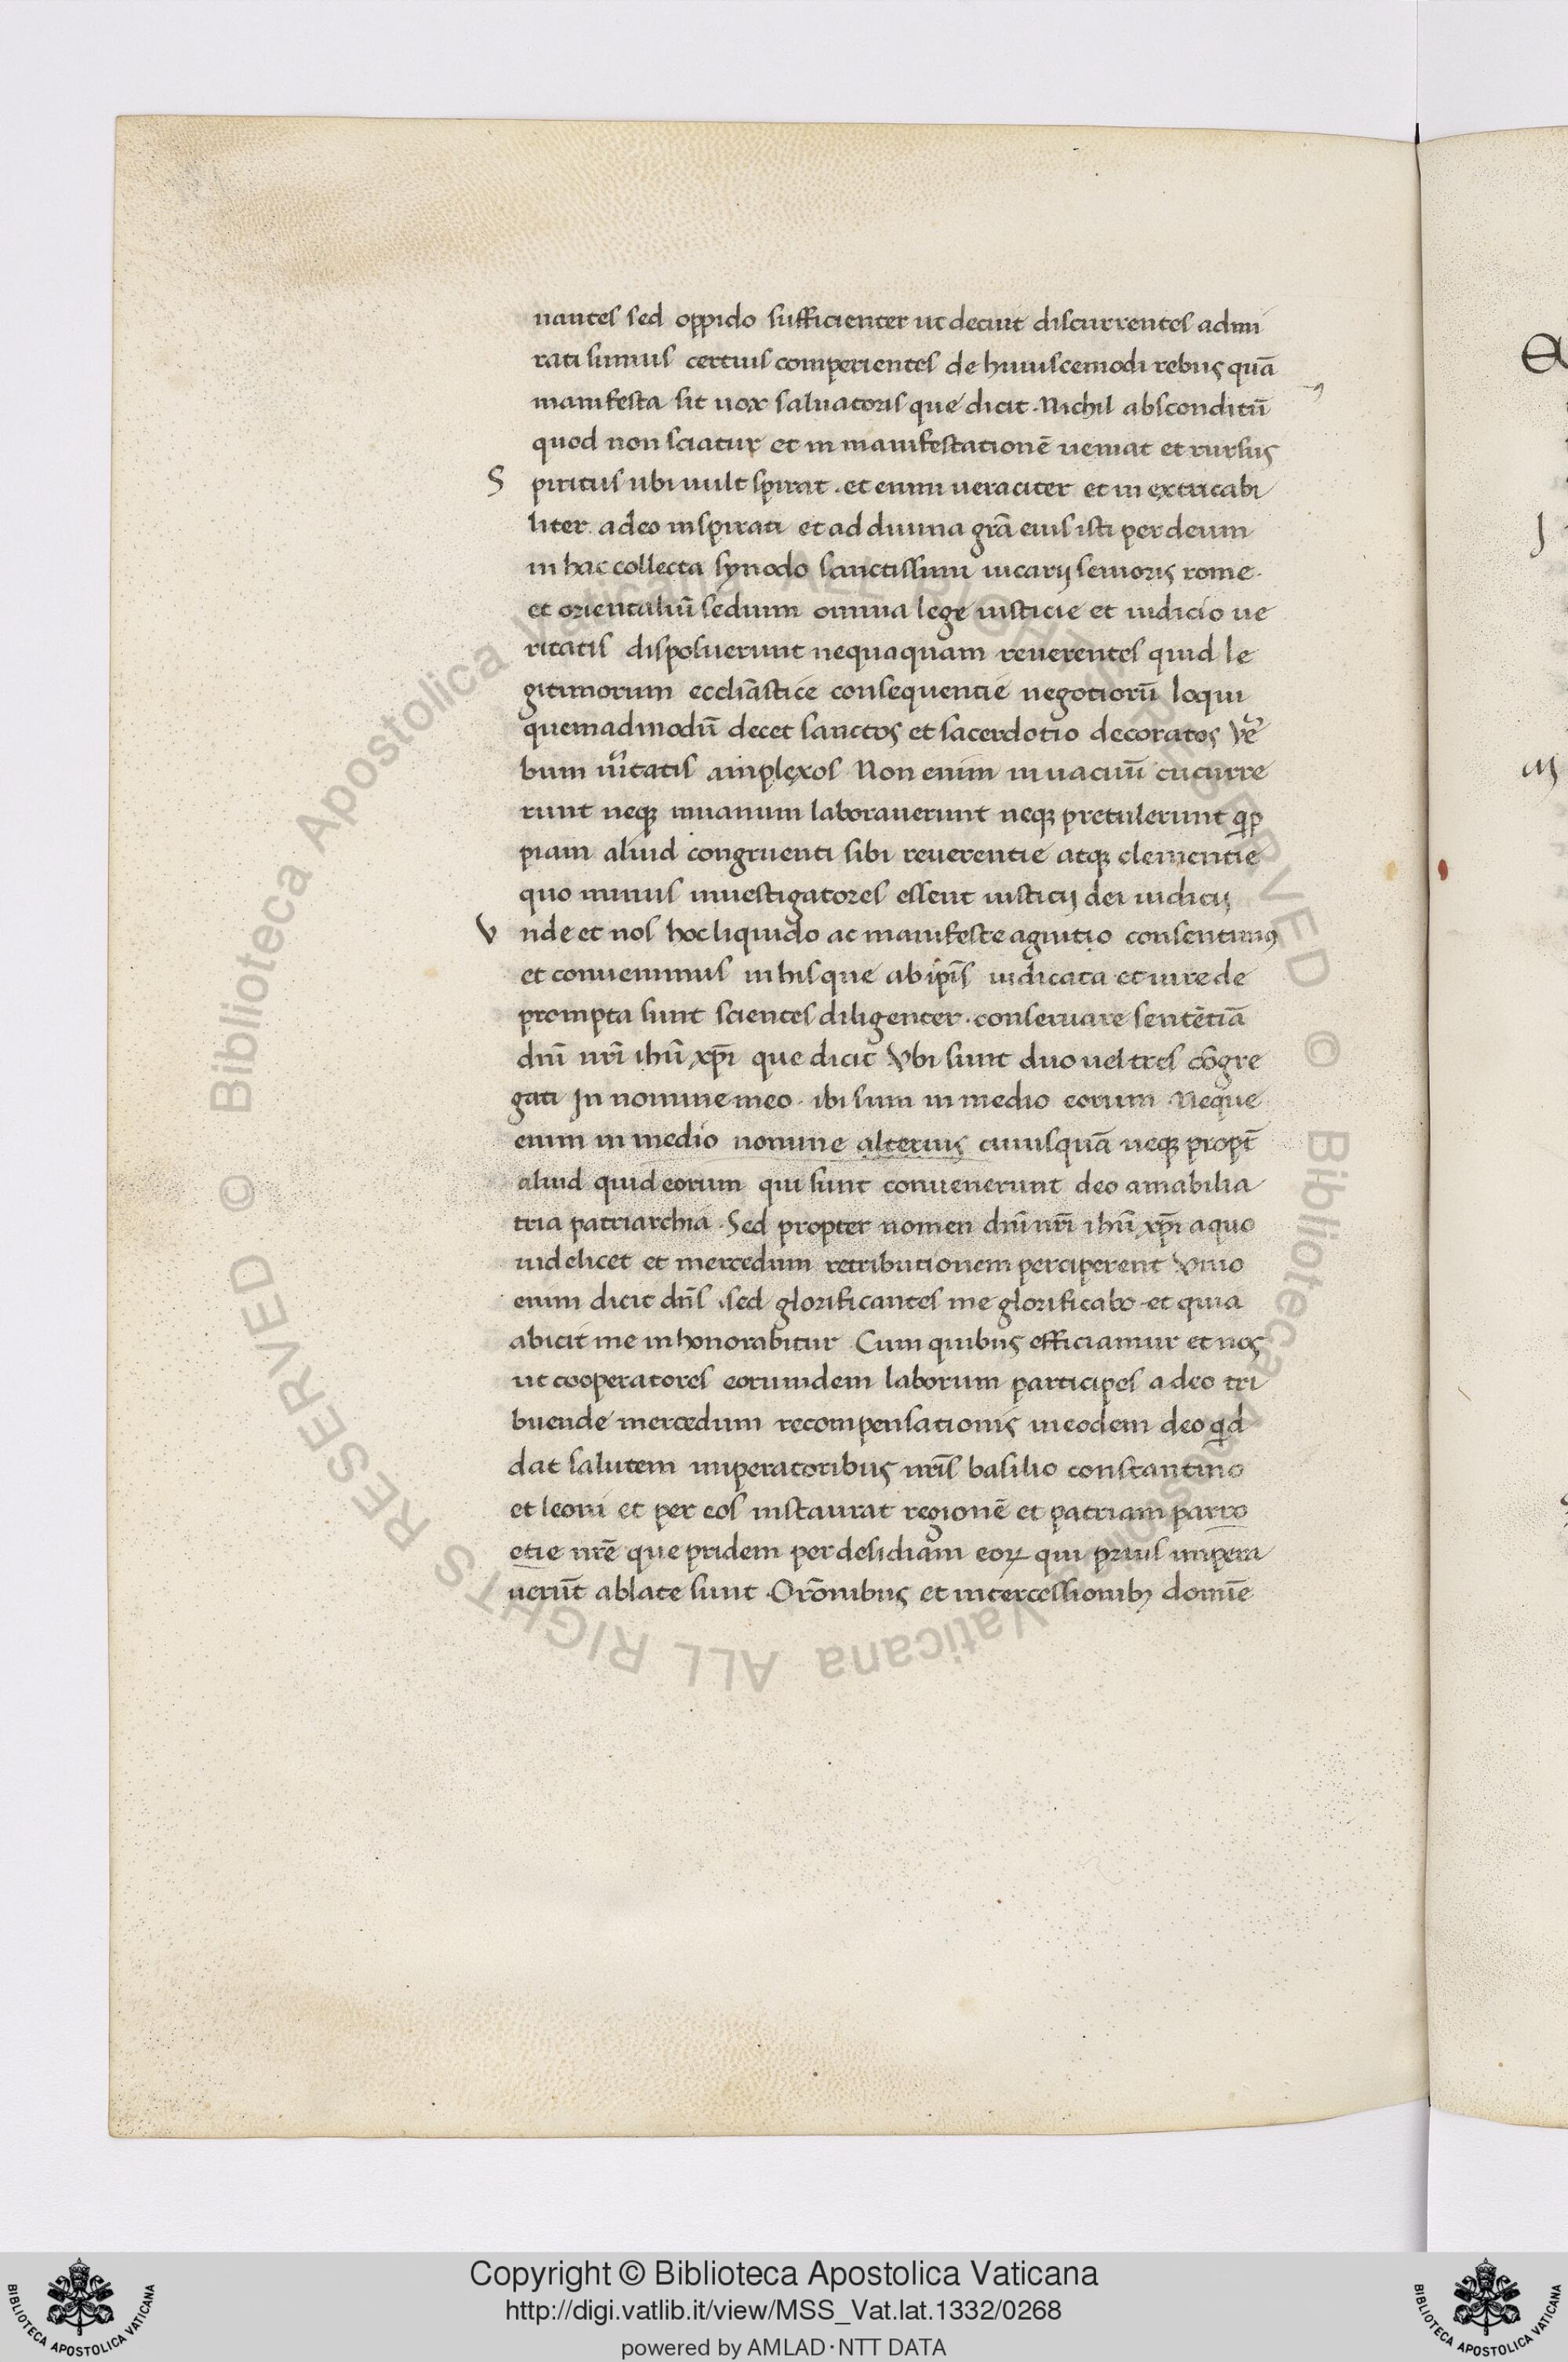 nantes sed oppido sufficienter ut decuit discurrentes admi
rati sumus certius comperientes de huiuscemodi rebus quā
manifesta sit uox saluatoris que dicit . Nichil absconditū
quod non sciatur et in manifestationē ueniat et rursus
S piritus ubi uult spirat . et enim ueraciter et in extricabi
liter adeo inspirati et ad diuina grā eius isti per deum
in hac collecta synodo sanctissimi uicarij senioris rome .
et orientaliū sedium omnia lege iusticie et iudicio ue
ritatis disposuerunt nequaquam reuerentes quid le
gitimorum eccliāstice consequentie negotiorū loqui
quemadmodū decet sanctos et sacerdotio decoratos Ve
bum uītatis amplexos Non enim in uacuū cucurre
runt neq; inuanum laborauerunt neq; pretulerunt qp
piam aliud congruenti sibi reuerentie atq; clementie
quo minus inuestigatores essent iusticij dei iudicij
V nde et nos hoc liquido ac manifeste agnitio consentimus
et conuenimus in his que ab ip̄is iudicata et iure de
prompta sunt scientes diligenter . conseruare sentētiā
dn̄i nr̄i ihū xp̄i que dicit Vbi sunt duo uel tres cōgre
gati In nomine meo . ibi sum in medio eorum . Neque
enim in medio nomine alterius cuiusquā neq; propt̄
aliud quid eorum qui sunt conuenerunt deo amabilia
tria patriarchia . Sed propter nomen dn̄i nr̄i ihū xp̄i aquo
uidelicet et mercedum retributionem perciperent Viuo
enim dicit dn̄s . sed glorificantes me glorificabo . et quia
abicit me inhonorabitur Cum quibus efficiamur et nos
ut cooperatores eorumdem laborum participes a deo tri
buende mercedum recompensationis in eodem deo qd
dat salutem imperatoribus nr̄is basilio constantino
et leoni et per eos instaurat regionē et patriam parro
etie nr̄e que pridem per desidiam eoꝝ qui prius impera
uerūt ablate sunt . Orōnibus et intercessionib; domīe
Copyright © Biblioteca Apostolica Vaticana
http://digi.vatlib.it/view/MSS_Vat.lat.1332/0268
powered by AMLAD・NTT DATA
BIBLIOTECA APOSTOLICA VATICANA
BIBLIOTECA APOSTOLICA VATICANA
© Biblioteca Apostolica Vaticana ALL RIGHTS RESERVED © Biblioteca Apostolica Vaticana ALL RIGHTS RESERVED